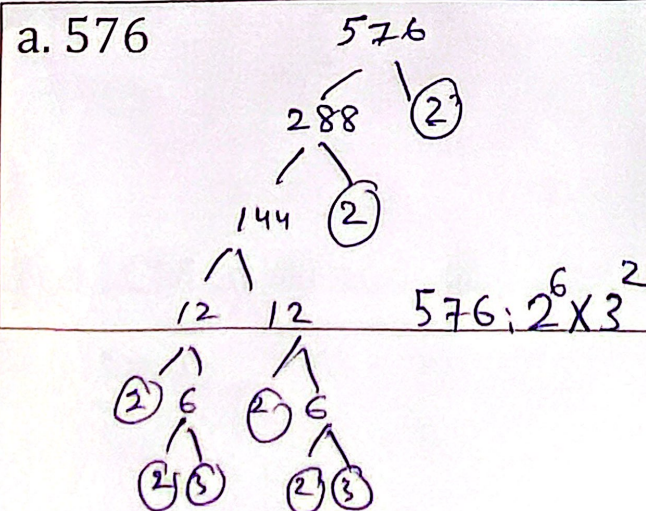 a. 576
576
288 2
144 2
12 12
576: 2⁶ X 3²
2 6 2 6
2 3 2 3